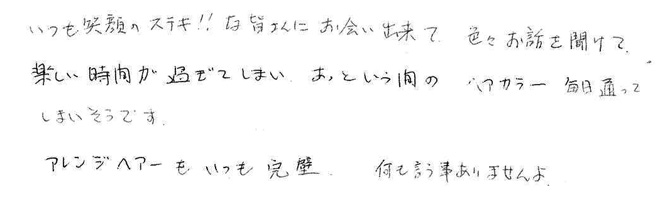 いつも笑顔のステキ!!な皆さんにお会い出来て 色々お話を聞けて、
楽しい時間が過ぎてしまい あっという間の ヘアカラー 毎日通って
しまいそうです。
アレンジヘアーもいつも完璧. 何も言う事ありませんよ.